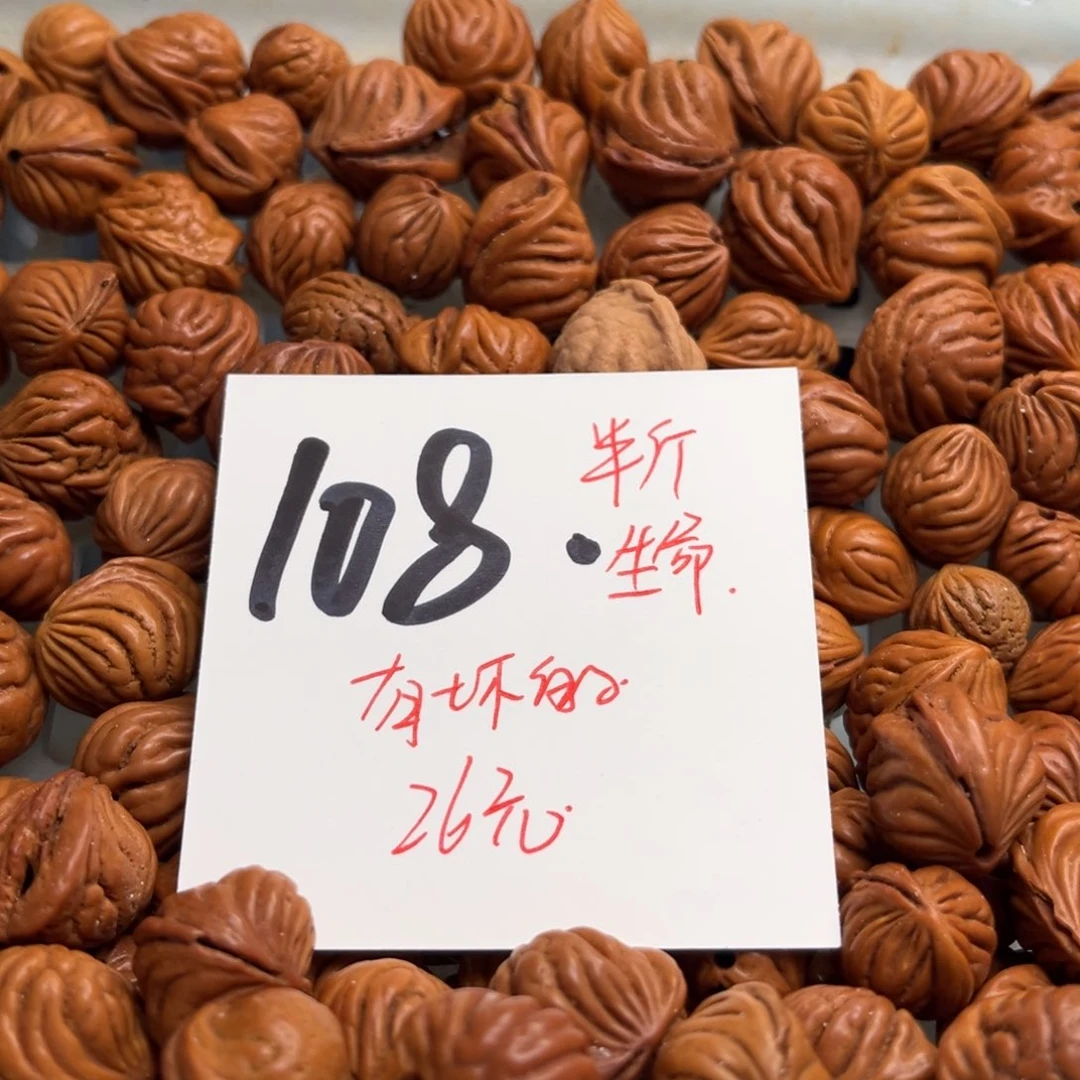 108.
半斤
生命.
有坏的
26元